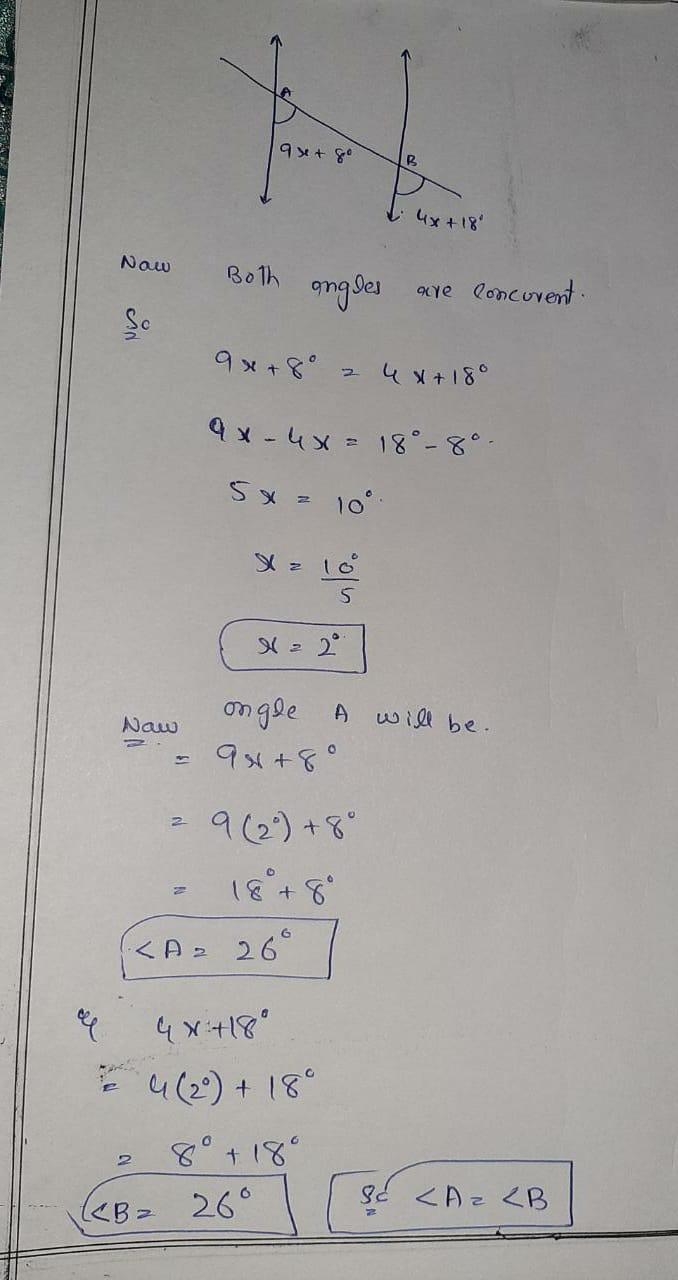 A
9x + 8°
B
4x + 18°
Now Both angles are concurent.
So
9x + 8° = 4x + 18°
9x - 4x = 18° - 8°.
5x = 10°.
x = 10°
5
x = 2°
Now angle A will be.
= 9x + 8°
= 9(2°) + 8°
= 18° + 8°
<A = 26°
& 4x + 18°
= 4(2°) + 18°
= 8° + 18°
<B = 26° So <A = <B